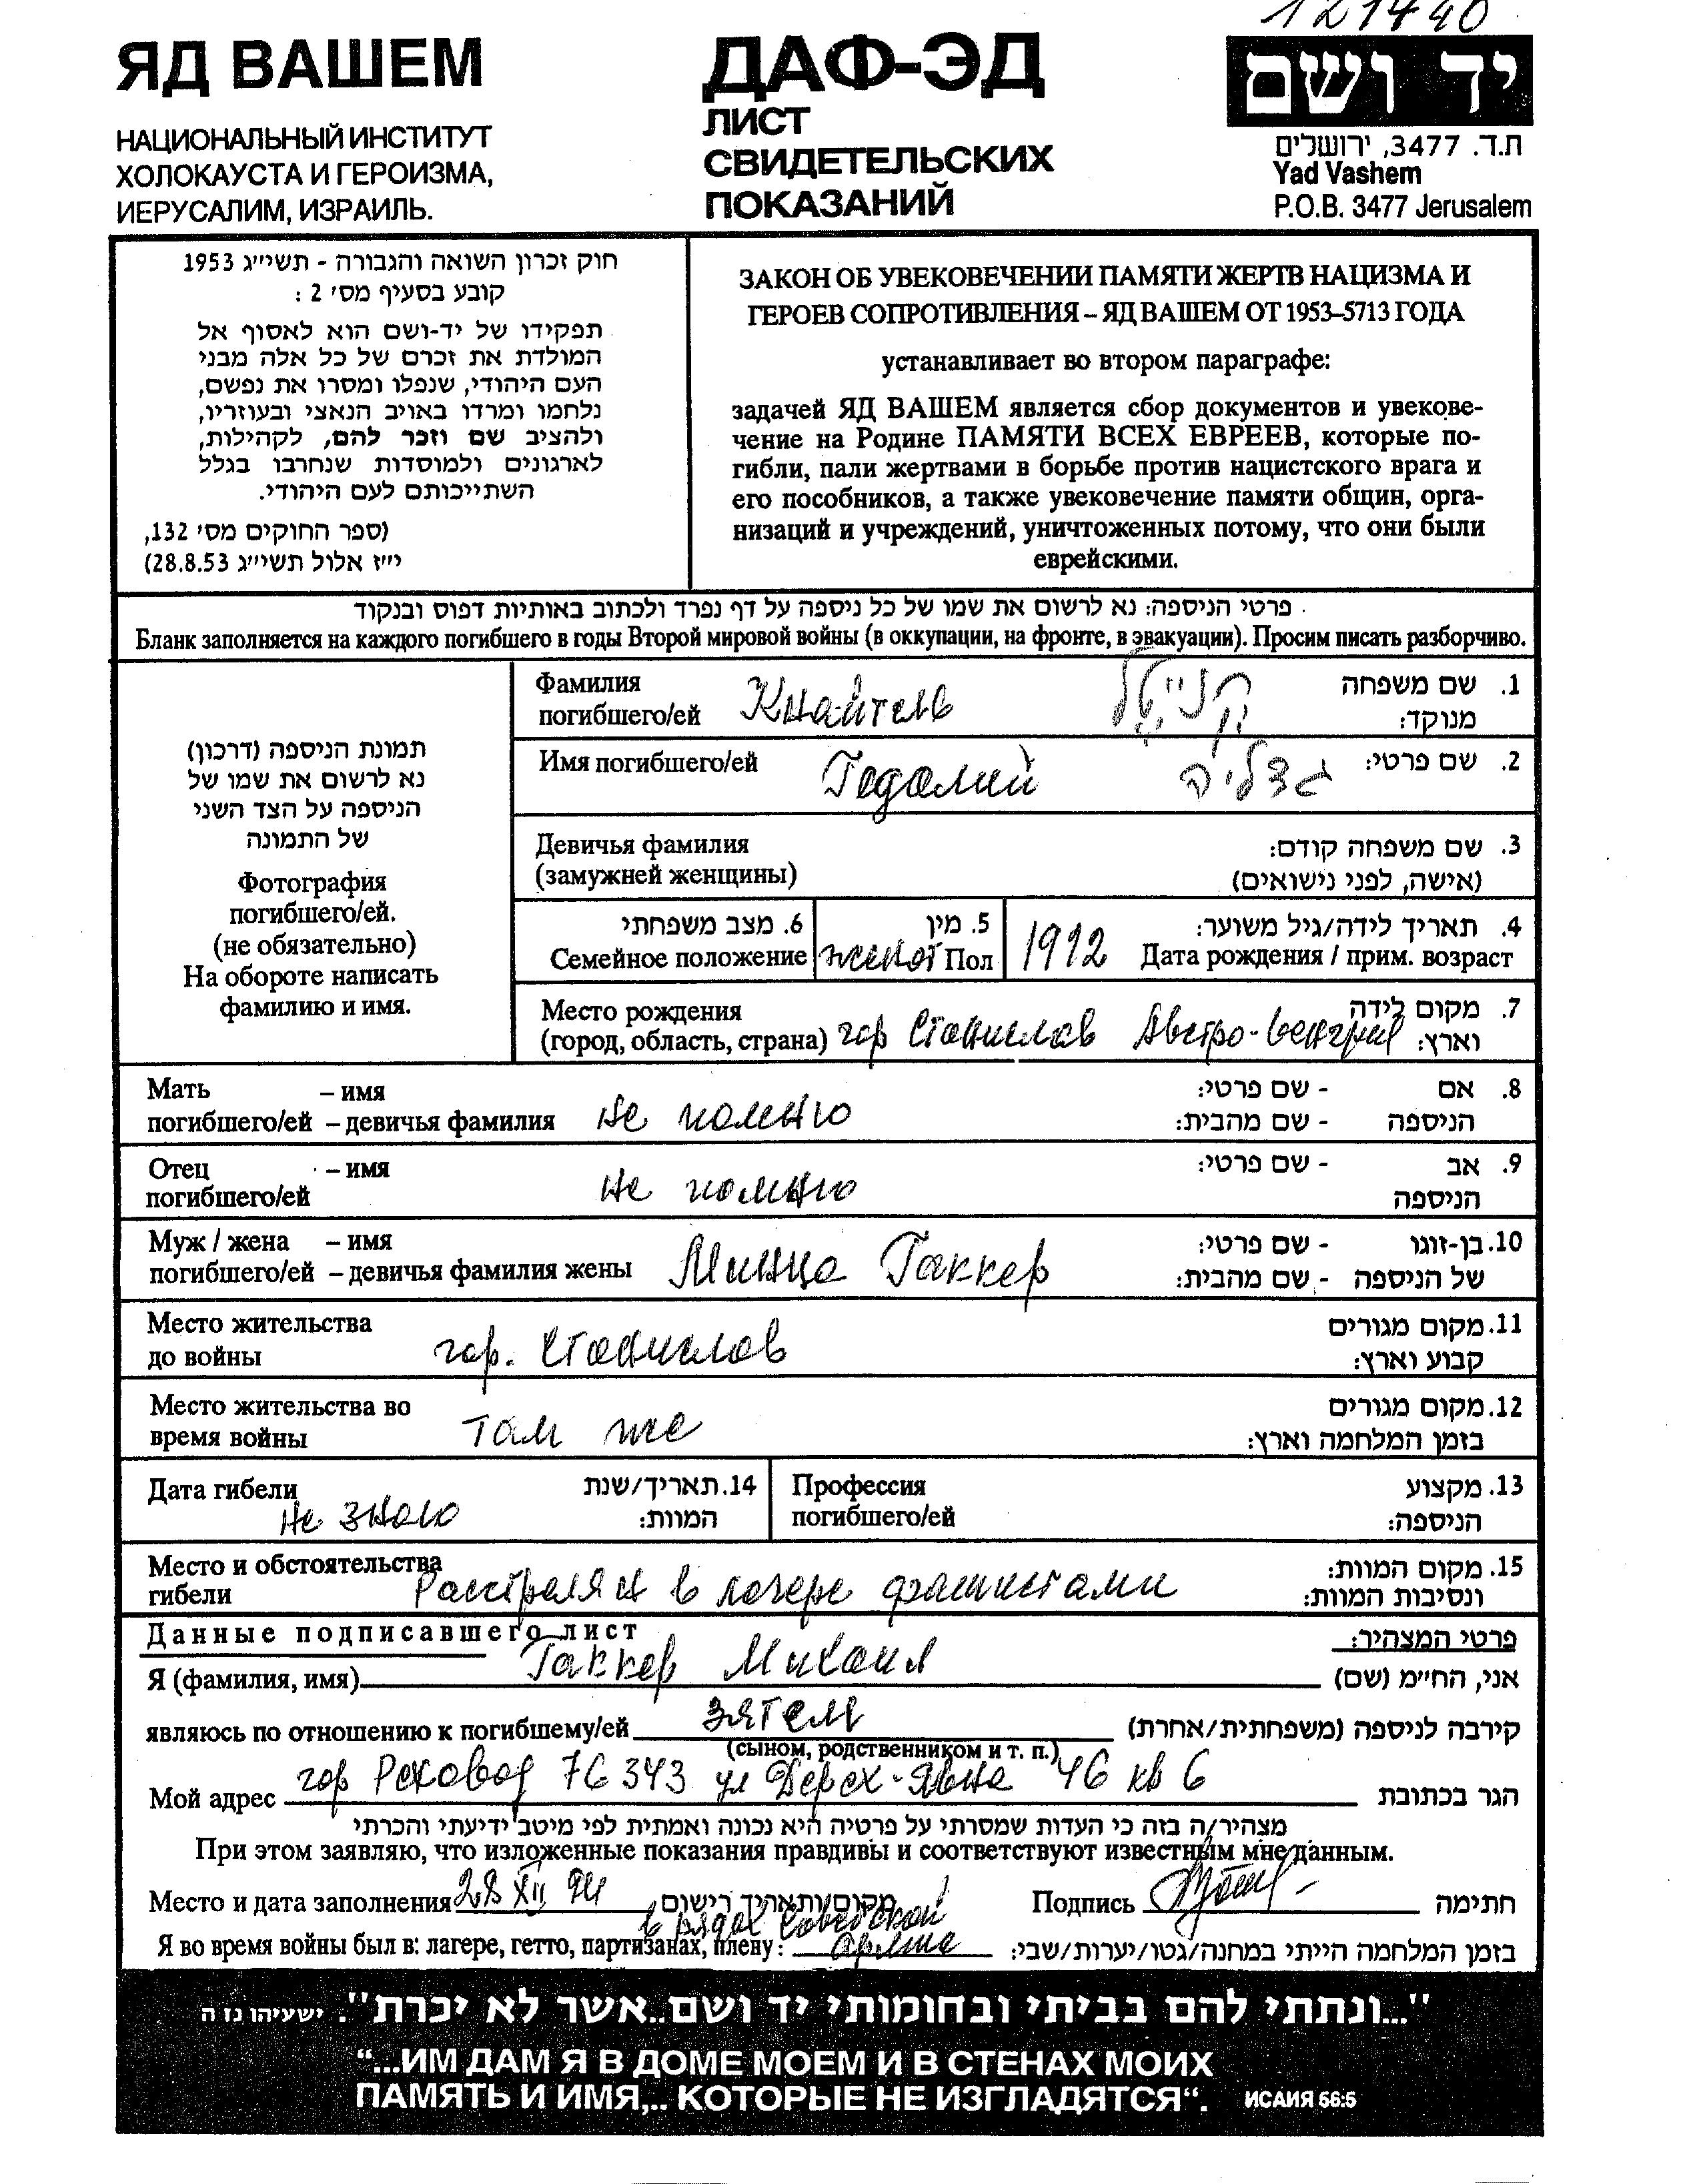 121440
ЯД ВАШЕМ
НАЦИОНАЛЬНЫЙ ИНСТИТУТ
ХОЛОКАУСТА И ГЕРОИЗМА,
ИЕРУСАЛИМ, ИЗРАИЛЬ.
ДАФ-ЭД
ЛИСТ
СВИДЕТЕЛЬСКИХ
ПОКАЗАНИЙ
יד ושם
ת.ד. 3477, ירושלים
Yad Vashem
P.O.B. 3477 Jerusalem
חוק זכרון השואה והגבורה - תשי״ג 1953
קובע בסעיף מס׳ 2 :
תפקידו של יד-ושם הוא לאסוף אל
המולדת את זכרם של כל אלה מבני
העם היהודי, שנפלו ומסרו את נפשם,
נלחמו ומרדו באויב הנאצי ובעוזריו,
ולהציב שם וזכר להם, לקהילות,
לארגונים ולמוסדות שנחרבו בגלל
השתייכותם לעם היהודי.
(ספר החוקים מס׳ 132,
י״ז אלול תשי״ג 28.8.53)
ЗАКОН ОБ УВЕКОВЕЧЕНИИ ПАМЯТИ ЖЕРТВ НАЦИЗМА И
ГЕРОЕВ СОПРОТИВЛЕНИЯ – ЯД ВАШЕМ ОТ 1953–5713 ГОДА
устанавливает во втором параграфе:
задачей ЯД ВАШЕМ является сбор документов и увекове-
чение на Родине ПАМЯТИ ВСЕХ ЕВРЕЕВ, которые по-
гибли, пали жертвами в борьбе против нацистского врага и
его пособников, а также увековечение памяти общин, орга-
низаций и учреждений, уничтоженных потому, что они были
еврейскими.
פרטי הניספה: נא לרשום את שמו של כל ניספה על דף נפרד ולכתוב באותיות דפוס ובנקוד
Бланк заполняется на каждого погибшего в годы Второй мировой войны (в оккупации, на фронте, в эвакуации). Просим писать разборчиво.
תמונת הניספה (דרכון)
נא לרשום את שמו של
הניספה על הצד השני
של התמונה
Фотография
погибшего/ей.
(не обязательно)
На обороте написать
фамилию и имя.
Фамилия
погибшего/ей Кнайтель קנייטל
1. שם משפחה
מנוקד:
Имя погибшего/ей Гедалий גדליה 2. שם פרטי:
Девичья фамилия
(замужней женщины)
3. שם משפחה קודם:
(אישה, לפני נישואים)
6. מצב משפחתי
Семейное положение
5. מין
женат Пол
1912
4. תאריך לידה/גיל משוער:
Дата рождения / прим. возраст
Место рождения
(город, область, страна) гор Станислав Австро-Венгрия
7. מקום לידה
וארץ:
Мать – имя
погибшего/ей – девичья фамилия не помню
8. אם - שם פרטי:
הניספה - שם מהבית:
Отец – имя
погибшего/ей не помню
9. אב - שם פרטי:
הניספה
Муж / жена – имя
погибшего/ей – девичья фамилия жены Минца Гаккер
10. בן-זוגו - שם פרטי:
של הניספה - שם מהבית:
Место жительства
до войны гор. Станислав
11. מקום מגורים
קבוע וארץ:
Место жительства во
время войны там же
12. מקום מגורים
בזמן המלחמה וארץ:
Дата гибели не знаю
14. תאריך/שנת
המוות:
Профессия
погибшего/ей
13. מקצוע
הניספה:
Место и обстоятельства
гибели Расстрелян в лагере фашистами
15. מקום המוות:
ונסיבות המוות:
Данные подписавшего лист
פרטי המצהיר:
Я (фамилия, имя) Гаккер Михаил אני, הח״מ (שם)
являюсь по отношению к погибшему/ей зятем קירבה לניספה (משפחתית/אחרת)
(сыном, родственником и т. п.)
Мой адрес гор Реховод 76343 ул Дерех-Явна 46 кв 6 הגר בכתובת
מצהיר/ה בזה כי העדות שמסרתי על פרטיה היא נכונה ואמתית לפי מיטב ידיעתי והכרתי
При этом заявляю, что изложенные показания правдивы и соответствуют известным мне данным.
Место и дата заполнения 28 XII 94 מקום/ותאריך רישום Подпись חתימה
в рядах Советской
Я во время войны был в: лагере, гетто, партизанах, плену: армии בזמן המלחמה הייתי במחנה/גטו/יערות/שבי:
"...ונתתי להם בביתי ובחומותי יד ושם..אשר לא יכרת". ישעיהו נו ה
“...ИМ ДАМ Я В ДОМЕ МОЕМ И В СТЕНАХ МОИХ
ПАМЯТЬ И ИМЯ,.. КОТОРЫЕ НЕ ИЗГЛАДЯТСЯ“. ИСАИЯ 56:5